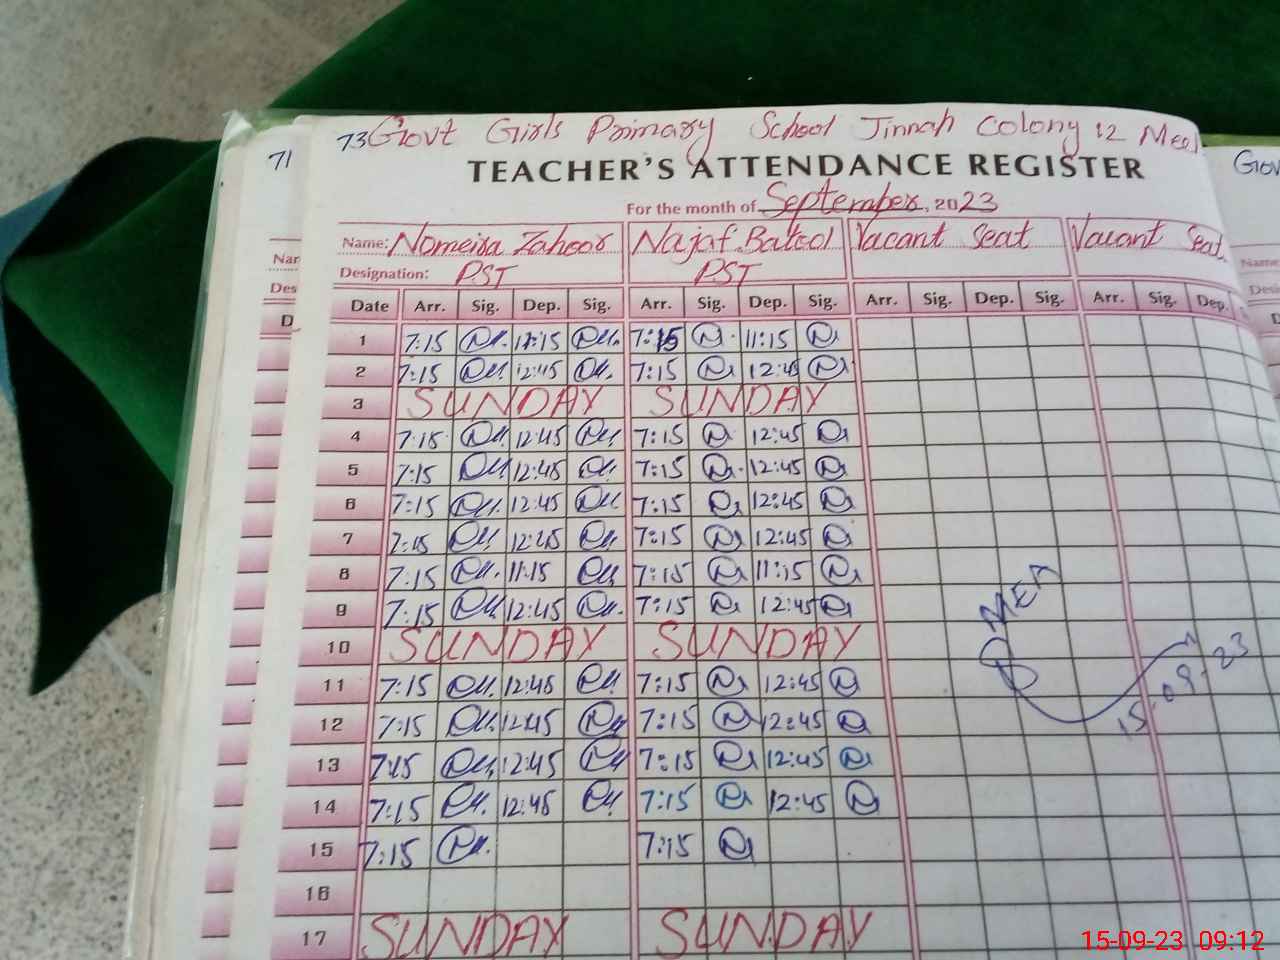 71
73 Govt Girls Primary School Jinnah Colony 12 Meel
TEACHER'S ATTENDANCE REGISTER
For the month of September, 2023
Name: Nomeira Zahoor Najaf Batool Vacant Seat Vacant Seat
Designation: PST PST
Date Arr. Sig. Dep. Sig. Arr. Sig. Dep. Sig. Arr. Sig. Dep. Sig. Arr. Sig. Dep.
1 7:15 11:15 7:15 11:15
2 7:15 12:45 7:15 12:45
3 SUNDAY SUNDAY
4 7:15 12:45 7:15 12:45
5 7:15 12:45 7:15 12:45
6 7:15 12:45 7:15 12:45
7 7:15 12:45 7:15 12:45
8 7:15 11:15 7:15 11:15
9 7:15 12:45 7:15 12:45
10 SUNDAY SUNDAY
11 7:15 12:45 7:15 12:45
12 7:15 12:45 7:15 12:45
13 7:15 12:45 7:15 12:45
14 7:15 12:45 7:15 12:45
15 7:15 7:15
16
17 SUNDAY SUNDAY
MEA
15.09.23
Nar
Des
D
Gov
Name
15-09-23 09:12